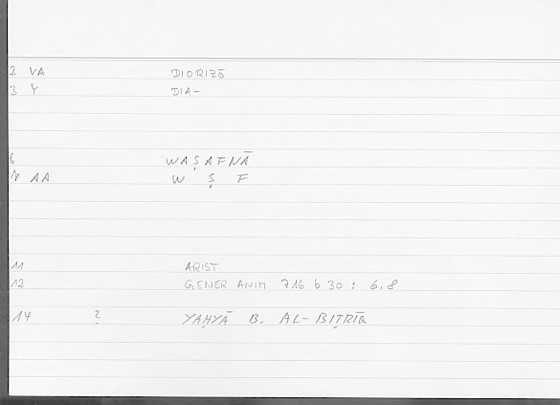 2 VA DIORIZŌ
3 Y DIA-
6 WAṢAFNĀ
7 AA W Ṣ F
11 ARIST
12 GENER ANIM 716 b 30 : 6,8
14 ? YAḤYĀ B. AL-BIṬRĪQ